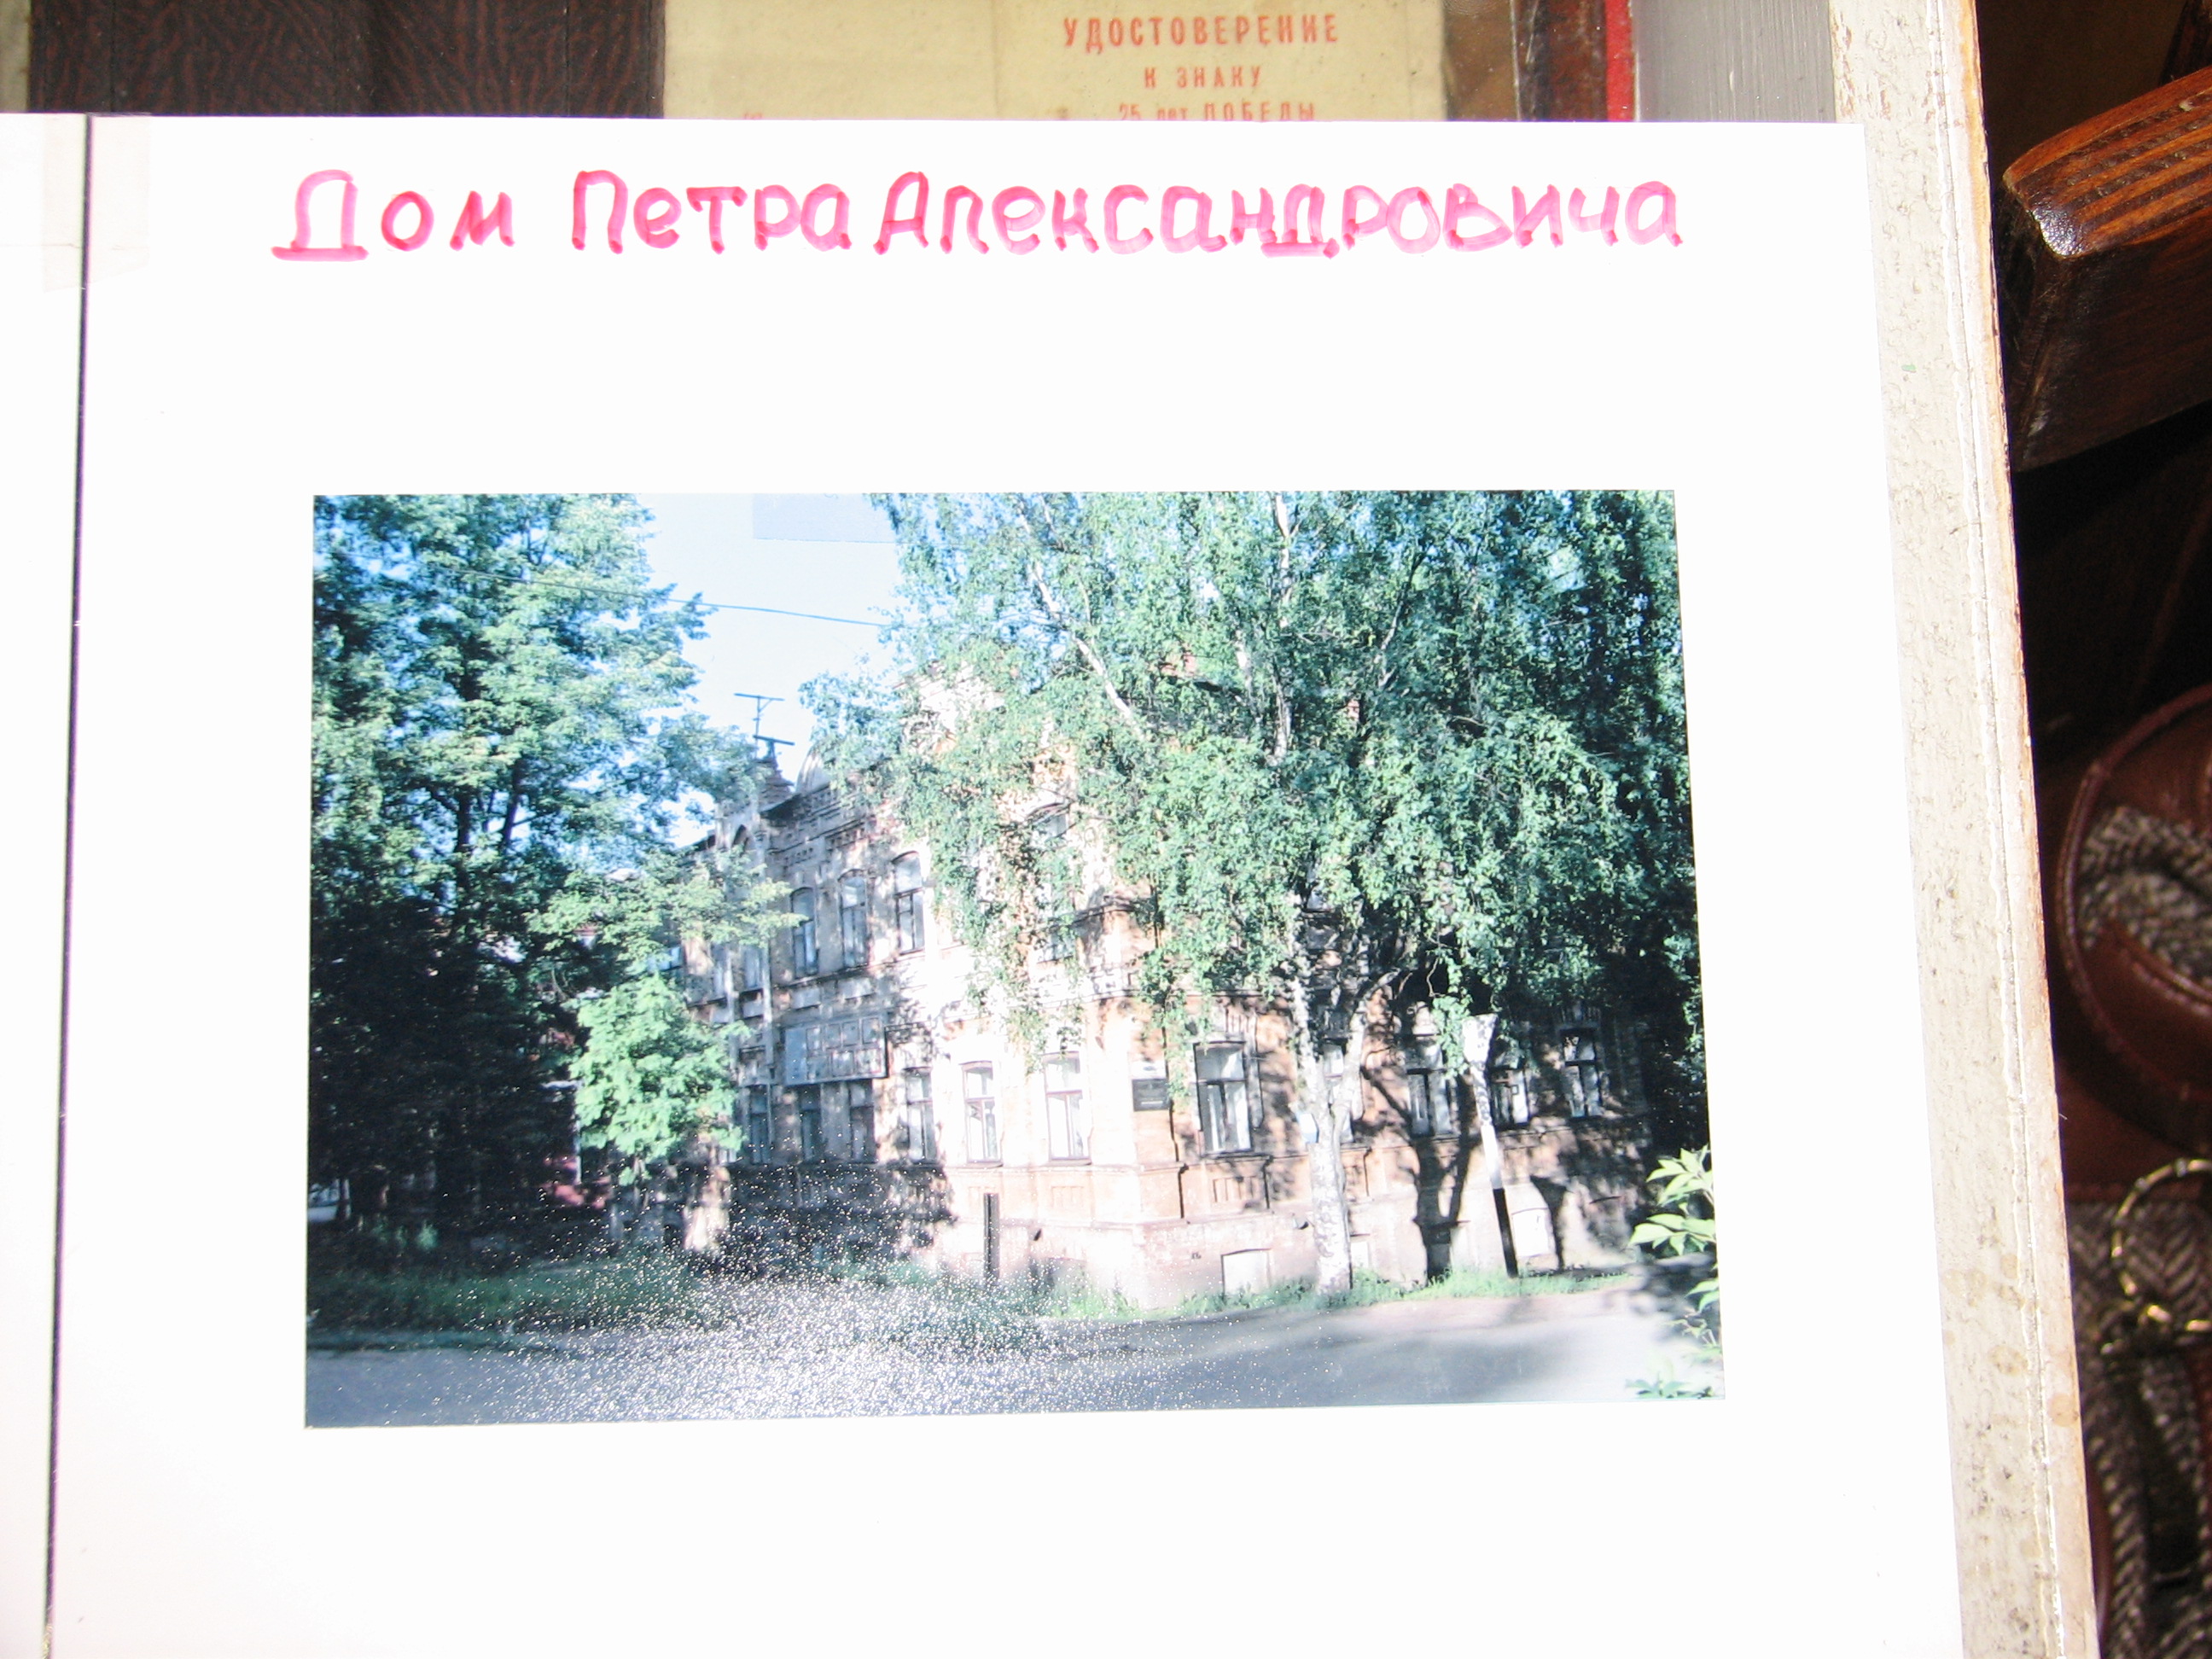 УДОСТОВЕРЕНИЕ
К ЗНАКУ
25 лет ПОБЕДЫ
Дом Петра Александровича